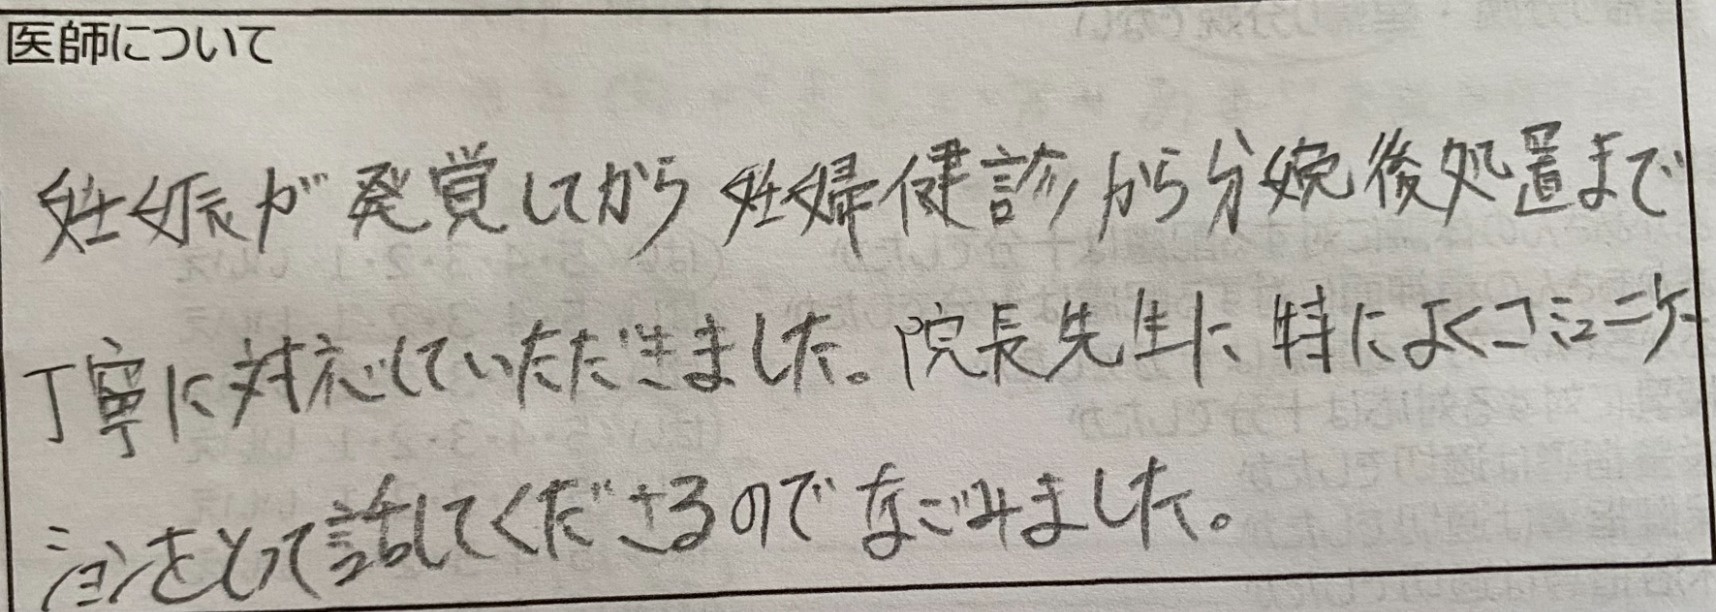 医師について
妊娠が発覚してから妊婦健診から分娩後処置まで
丁寧に対応していただきました。院長先生に特によくコミュニケー
ションをとって話してくださるのでなごみました。